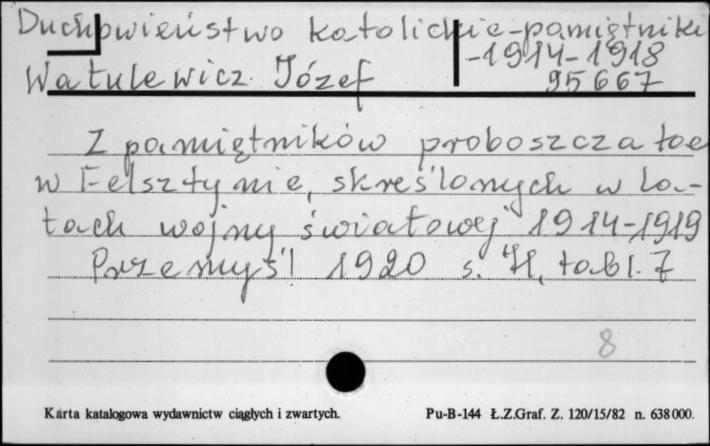 Duchowieństwo katolickie-pamiętniki
-1914-1918
Watulewicz Józef 95667
Z pamiętników proboszcza łac
w Felsztynie, skreślonych w la-
tach wojny światowej 1914-1919
Przemyśl 1920 s. tabl. 7
8
Karta katalogowa wydawnictw ciągłych i zwartych. Pu-B-144 Ł.Z.Graf. Z. 120/15/82 n. 638000.